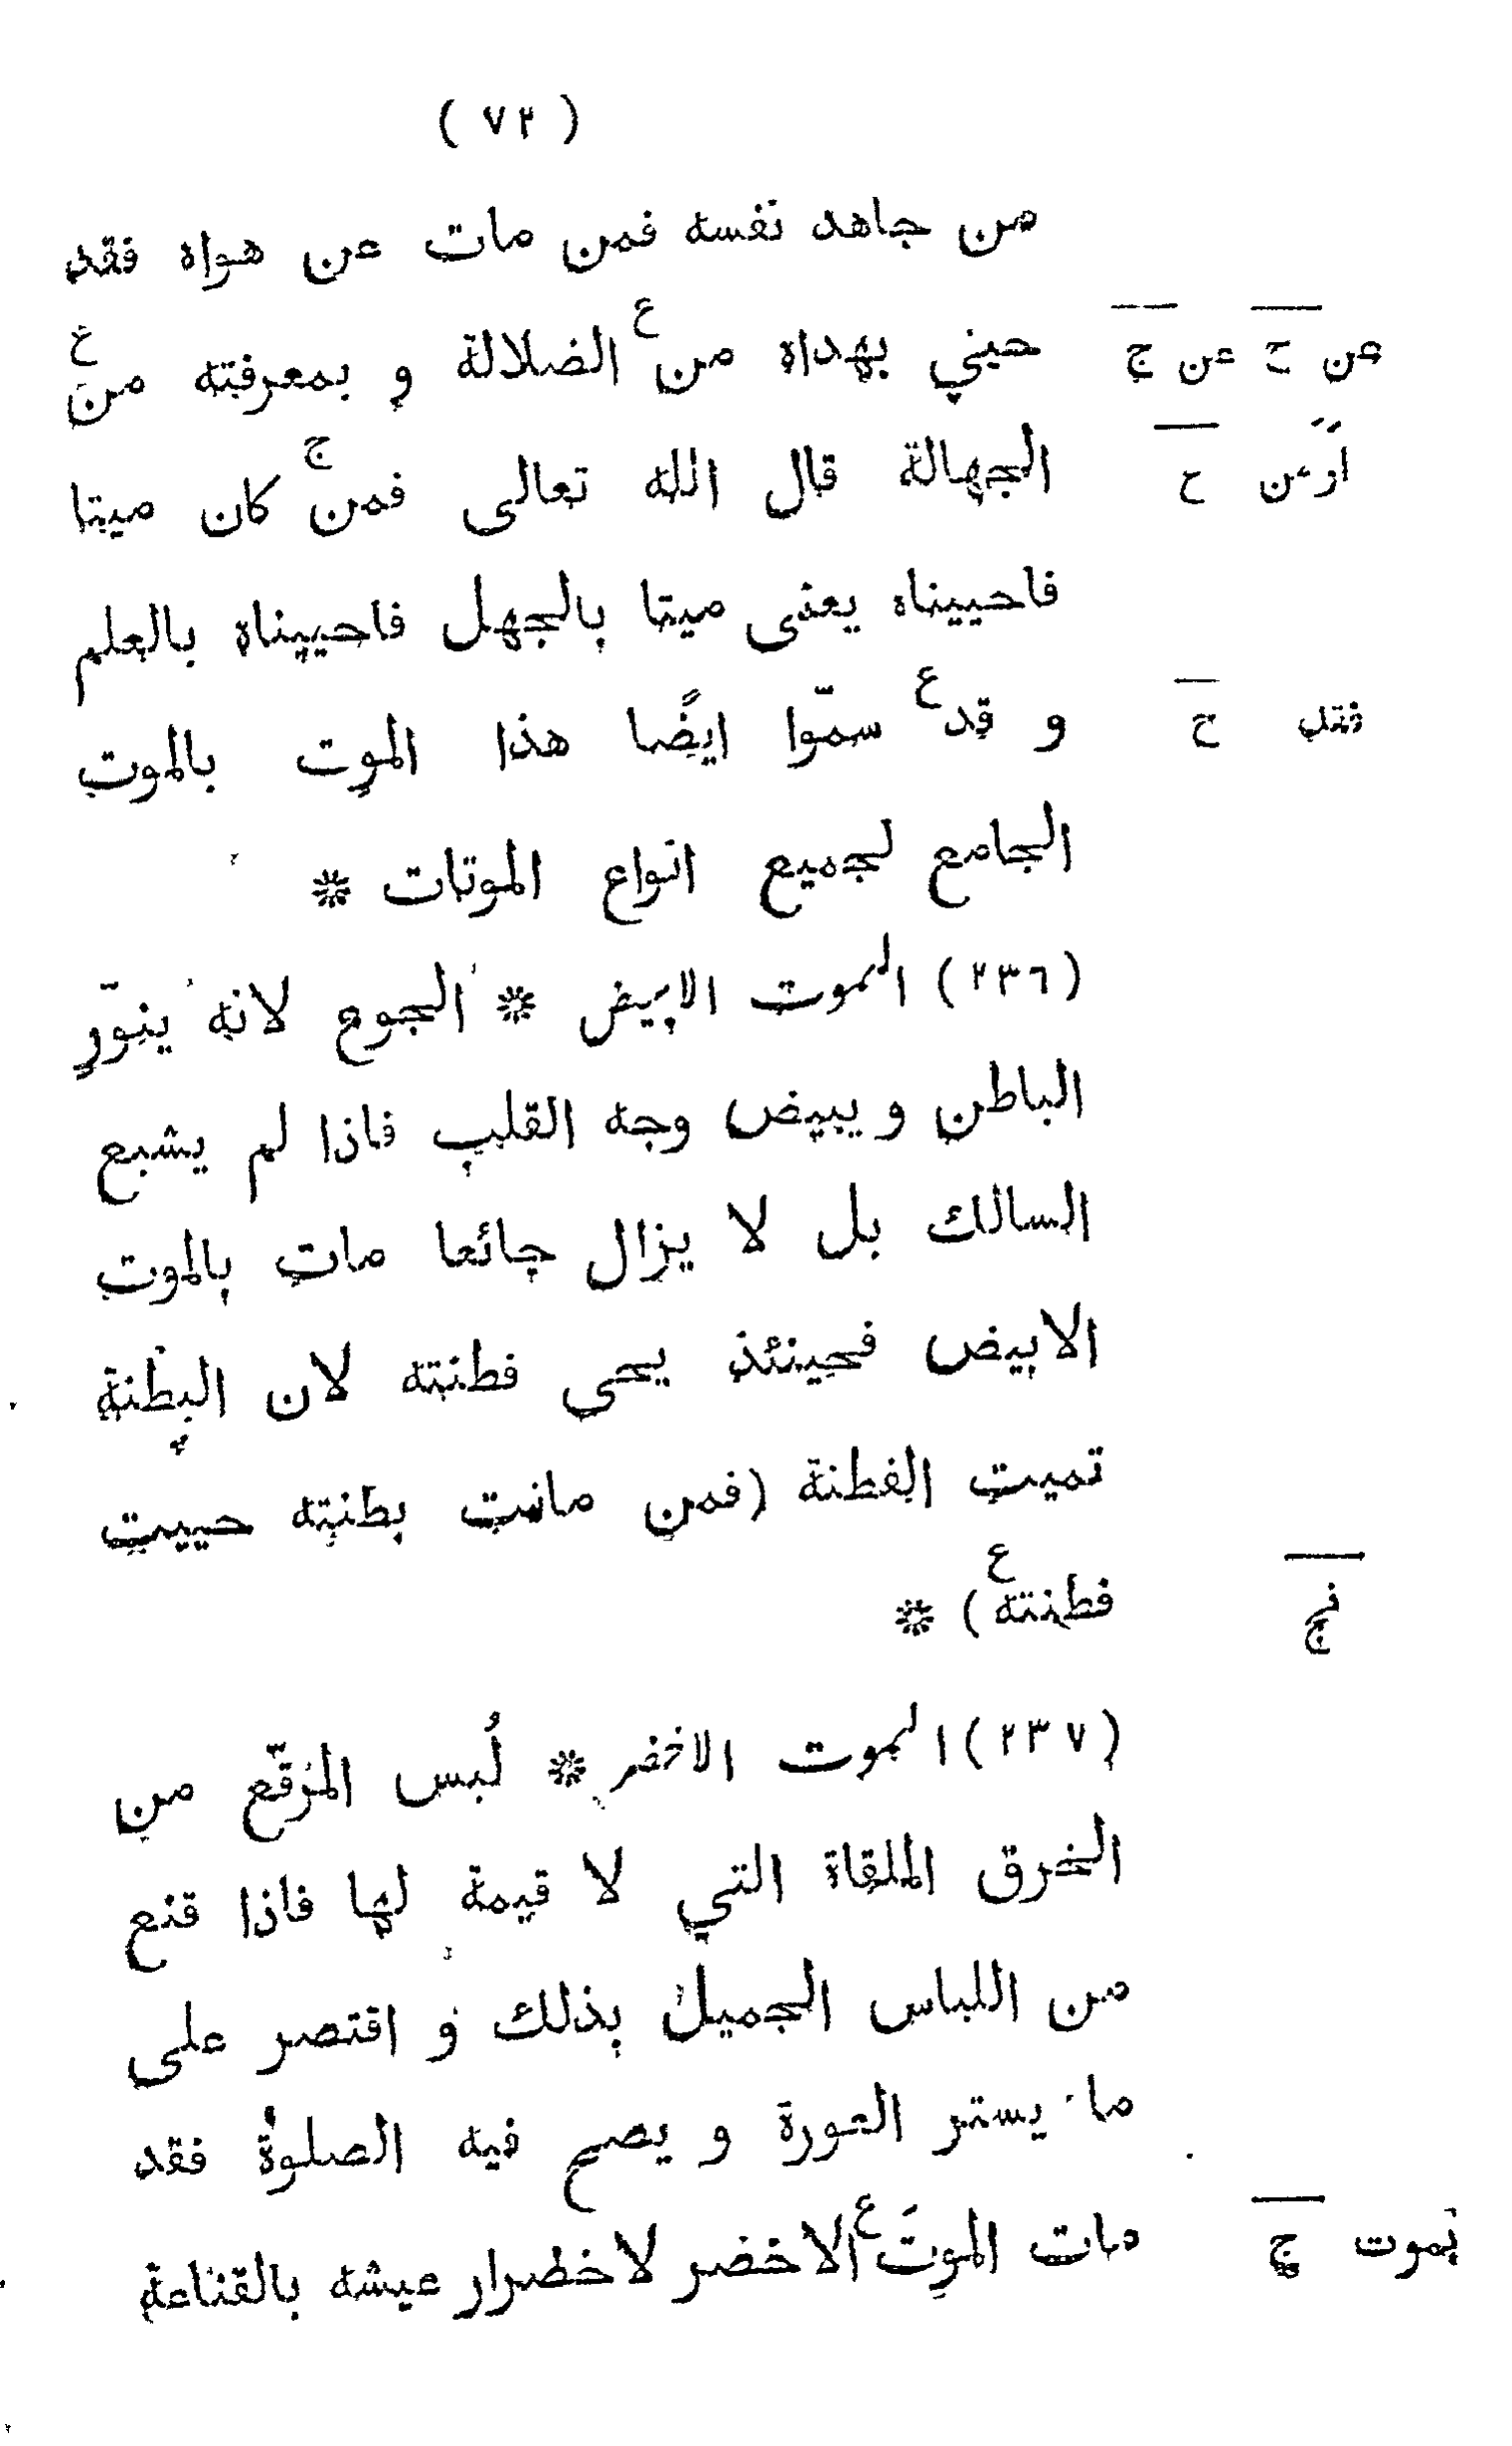 ( ٧٢ )
من جاهد نفسه فمن مات عن هواه فقد
حيني بهداه من ع الضلالة و بمعرفته من ع
من ح عن ج
الجهالة قال الله تعالى فمن ج كان ميتا
ح
فاحييناه يعنى ميتا بالجهل فاحييناه بالعلم
و قد ع سمّوا ايضًا هذا الموت بالموت
فقد ح
الجامع لجميع انواع الموتات *
(٢٣٦) الموت الابيض * الجوع لانه ينوّر
الباطن و يبيض وجه القلب فاذا لم يشبع
السالك بل لا يزال جائعا مات بالموت
الابيض فحينئذ يحى فطنته لان البطنة
تميت الفطنة (فمن ماتت بطنته حييت
فطنته ع) *
(٢٣٧) الموت الاخضر * لُبس المرقّع من
الخرق الملقاة التي لا قيمة لها فاذا قنع
من اللباس الجميل بذلك و اقتصر على
ما يستر العورة و يصح فيه الصلوة فقد
مات الموتَ ع الاخضر لاخضرار عيشه بالقناعة
بموت ج